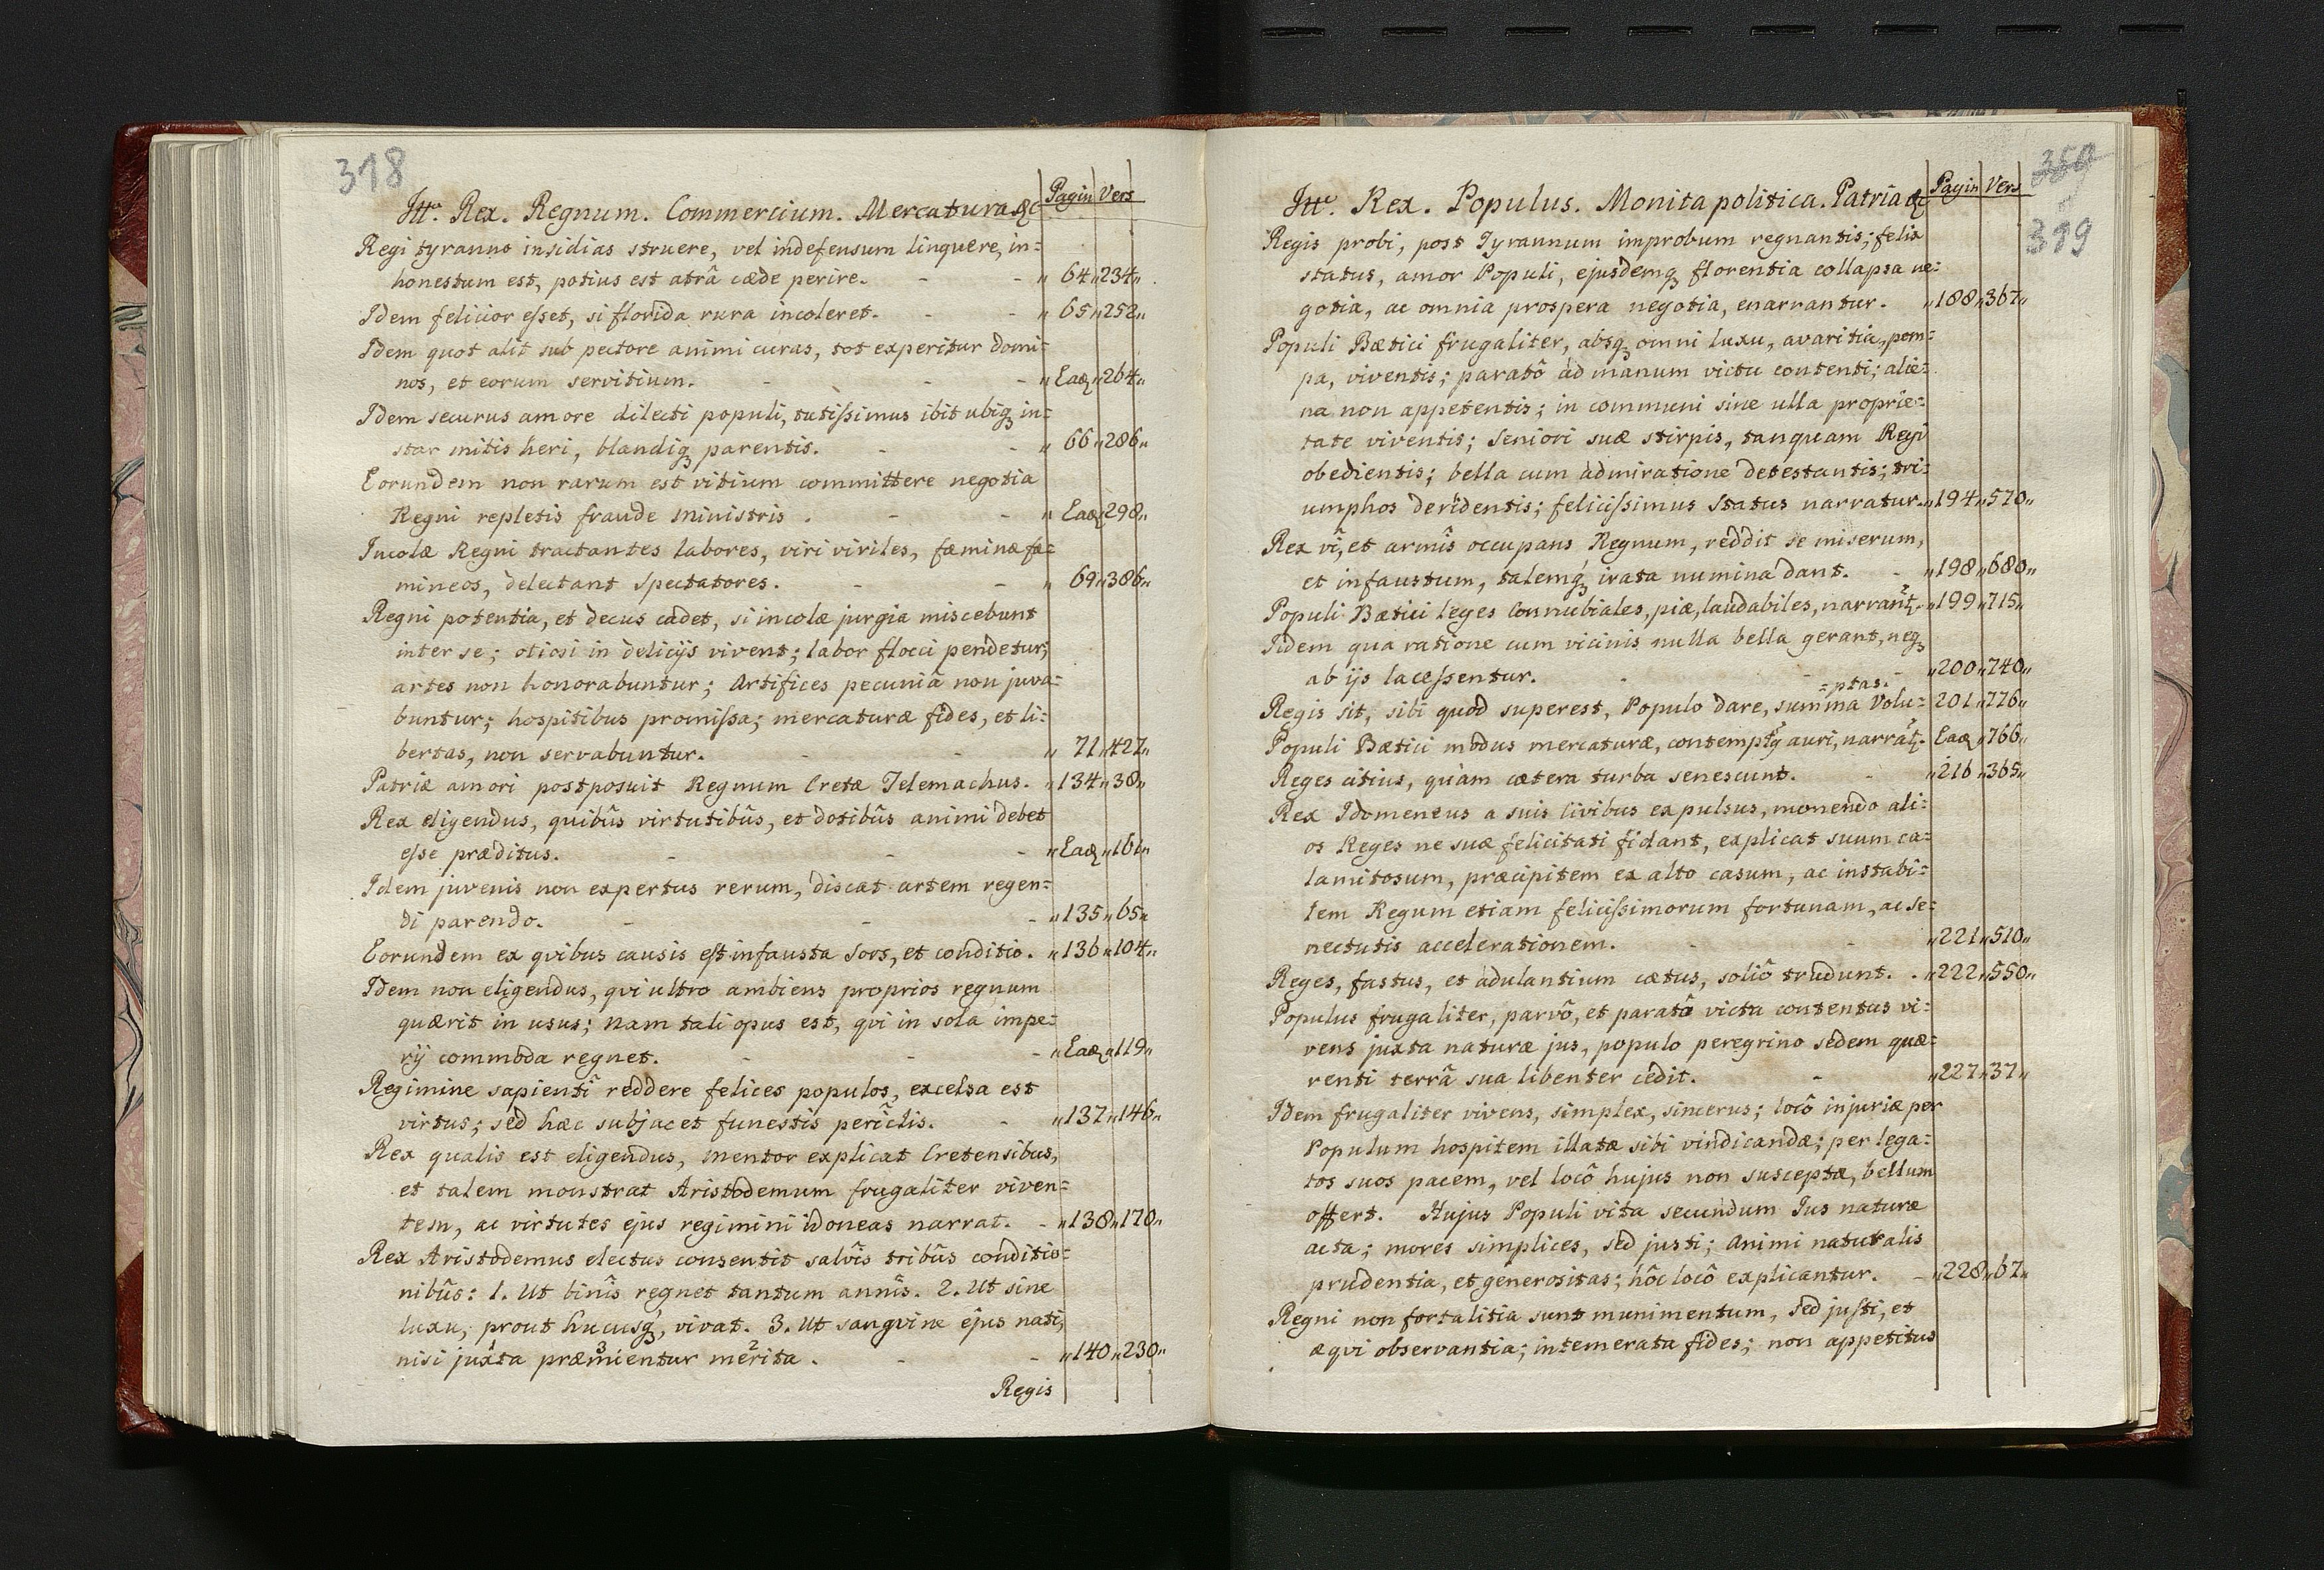 318
Itt. Rex. Regnum. Commercium. Mercatura &c Pagin Vers
Regi tyranno insidias struere, vel indefensum linquere, in=
honestum est, potius est atrâ cæde perire. - - „ 64 „ 234 „
Idem felicior esset, si florida rura incoleret. - - „ 65 „ 252 „
Idem quot alit sub pectore animi curas, tot experitur domi=
nos, et eorum servitium. - - - - „ Eaꝫ „ 264 „
Idem securus amore dilecti populi, tutissimus ibit ubiqꝫ in=
star mitis heri, blandiqꝫ parentis. - - „ 66 „ 286 „
Eorundem non rarum est vitium committere negotia
Regni repletis fraude Ministris . - - „ Eaꝫ „ 298 „
Incolæ Regni tractantes labores, viri viriles, fæminæ fæ=
mineos, delectant Spectatores. - - „ 69 „ 386 „
Regni potentia, et decus cadet, si incolæ jurgia miscebunt
inter se; otiosi in delicijs vivent; labor flocci pendetur;
artes non honorabuntur; Artifices pecuniâ non juva=
buntur; hospitibus promissa; mercaturæ fides, et li=
bertas, non servabuntur. - - „ 71 „ 427 „
Patriæ amori postposuit Regnum Cretæ Telemachus. „ 134 „ 38 „
Rex eligendus, quibûs virtutibûs, et dotibûs animi debet
esse præditus. - - - „ Eaꝫ „ 161 „
Idem juvenis non expertus rerum, discat artem regen=
di parendo. - - - „ 135 „ 65 „
Eorundem ex qvibus causis est infausta Sors, et conditio. „ 136 „ 104 „
Idem non eligendus, qvi ultro ambiens proprios regnum
quærit in usus; Nam tali opus est, qvi in sola impe=
rij commoda regnet. - - - „ Eaꝫ „ 119 „
Regimine sapientî reddere felices populos, excelsa est
virtus; sed hæc subjacet funestis periclis. - „ 137 „ 146 „
Rex qualis est eligendus, Mentor explicat Cretensibus,
et talem monstrat Aristodemum frugaliter viven=
tem, ac virtutes ejus regimini idoneas narrat. - „ 138 „ 170 „
Rex Aristodemus electus consentit salvîs tribûs conditio=
nibûs: 1. Ut binîs regnet tantum annîs. 2. Ut sine
luxu, prout hucusqꝫ, vivat. 3. Ut sangvine ejus nati,
nisi juxta præmientur merita . - - „ 140 „ 230 „
Regis
359
319
Itt. Rex. Populus. Monita politica. Patria &c Pagin Vers
Regis probi, post Tyrannum improbum regnantis; felix
status, amor Populi, ejusdemqꝫ florentia collapsa ne=
gotia, ac omnia prospera negotia, enarrantur. „ 188 „ 367 „
Populi Bætici frugaliter, absqꝫ omni luxu, avaritia, pom=
pa, viventis; paratô ad manum victu contenti; alie=
na non appetentis; in communi sine ulla proprie=
tate viventis; Seniori suæ stirpis, tanquam Regi
obedientis; bella cum admiratione detestantis; tri=
umphos deridentis; felicissimus Status narratur. „ 194 „ 570 „
Rex vî, et armîs occupans Regnum, reddit se miserum,
et infaustum, talemqꝫ irata numina dant. - „ 198 „ 680 „
Populi Bætici leges Connubiales, piæ, laudabiles, narrantr. „ 199 „ 715 „
Iidem qua ratione cum vicinis nulla bella gerant, neqꝫ
ab ijs lacessentur. - - - „ 200 „ 740 „
=ptas.
Regis sit, sibi quod superest, Populo dare, summa Volu= 201 „ 776 „
Populi Bætici modus mercaturæ, contemptqꝫ auri, narratr. Eaꝫ „ 766 „
Reges citius, quàm cætera turba senescunt. - „ 216 „ 365 „
Rex Idomeneus a suis Civibus expulsus, monendo ali=
os Reges ne suæ felicitati fidant, explicat suum ca=
lamitosum, præcipitem ex alto casum, ac instabi=
lem Regum etiam felicissimorum fortunam, ac se=
nectutis accelerationem. - - „ 221 „ 510 „
Reges, fastus, et adulantium cætus, soliô trudunt. . „ 222 „ 550 „
Populus frugaliter, parvô, et paratô victu contentus vi=
vens juxta naturæ jus, populo peregrino sedem quæ=
renti terrâ sua libenter cedit. - „ 227 „ 37 „
Idem frugaliter vivens, simplex, sincerus; locô injuriæ per
Populum hospitem illatæ sibi vindicandæ; per lega=
tos suos pacem, vel locô hujus non susceptæ, bellum
offert. Hujus Populi vita secundum Jus naturæ
acta; mores simplices, sed justi; animi naturalis
prudentia, et generositas; hôc locô explicantur. - „ 228 „ 67 „
Regni non fortalitia sunt munimentum, sed justi, et
æqvi observantia; intemerata fides; non appetitus